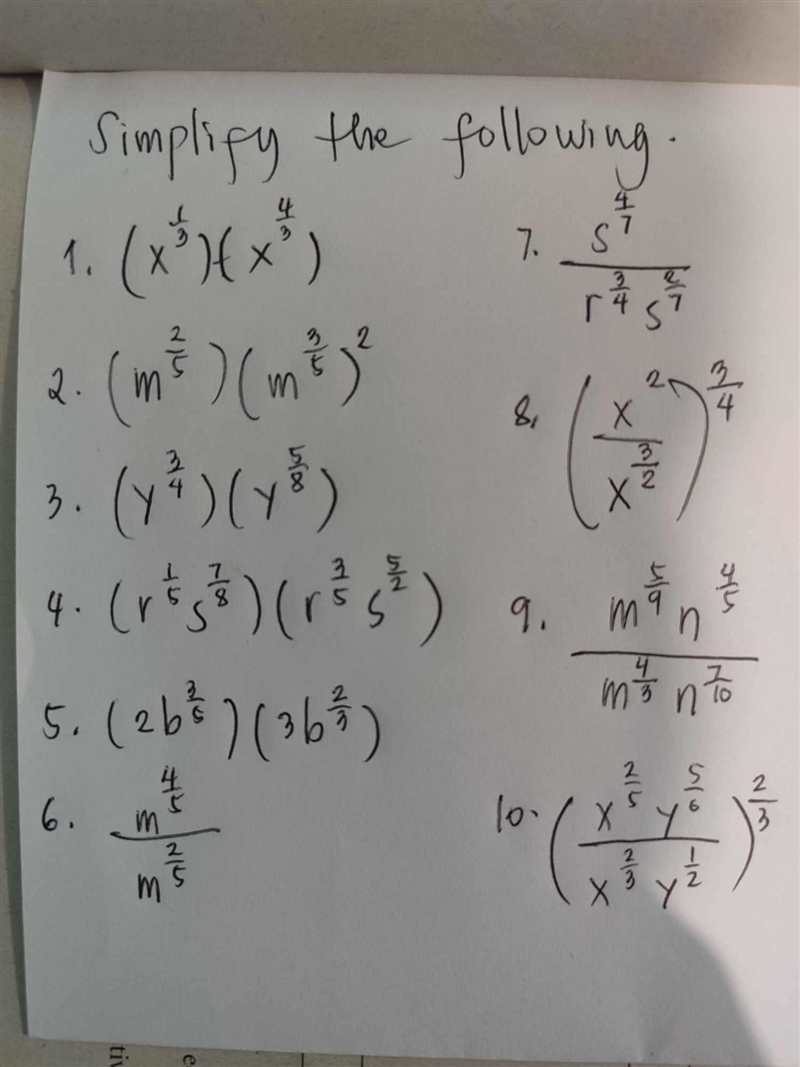 Simplify the following.
1. (x^{1/3})(x^{4/3})
2. (m^{2/5})(m^{3/5})^2
3. (y^{3/4})(y^{5/8})
4. (r^{1/5} s^{7/8})(r^{3/5} s^{5/2})
5. (2b^{3/5})(3b^{2/3})
6. m^{4/5} / m^{2/5}
7. s^{4/7} / r^{3/4} s^{2/7}
8. (x^2 / x^{3/2})^{3/4}
9. m^{5/9} n^{4/5} / m^{4/3} n^{7/10}
10. (x^{2/5} y^{5/6} / x^{2/3} y^{1/2})^{2/3}
tiv
e